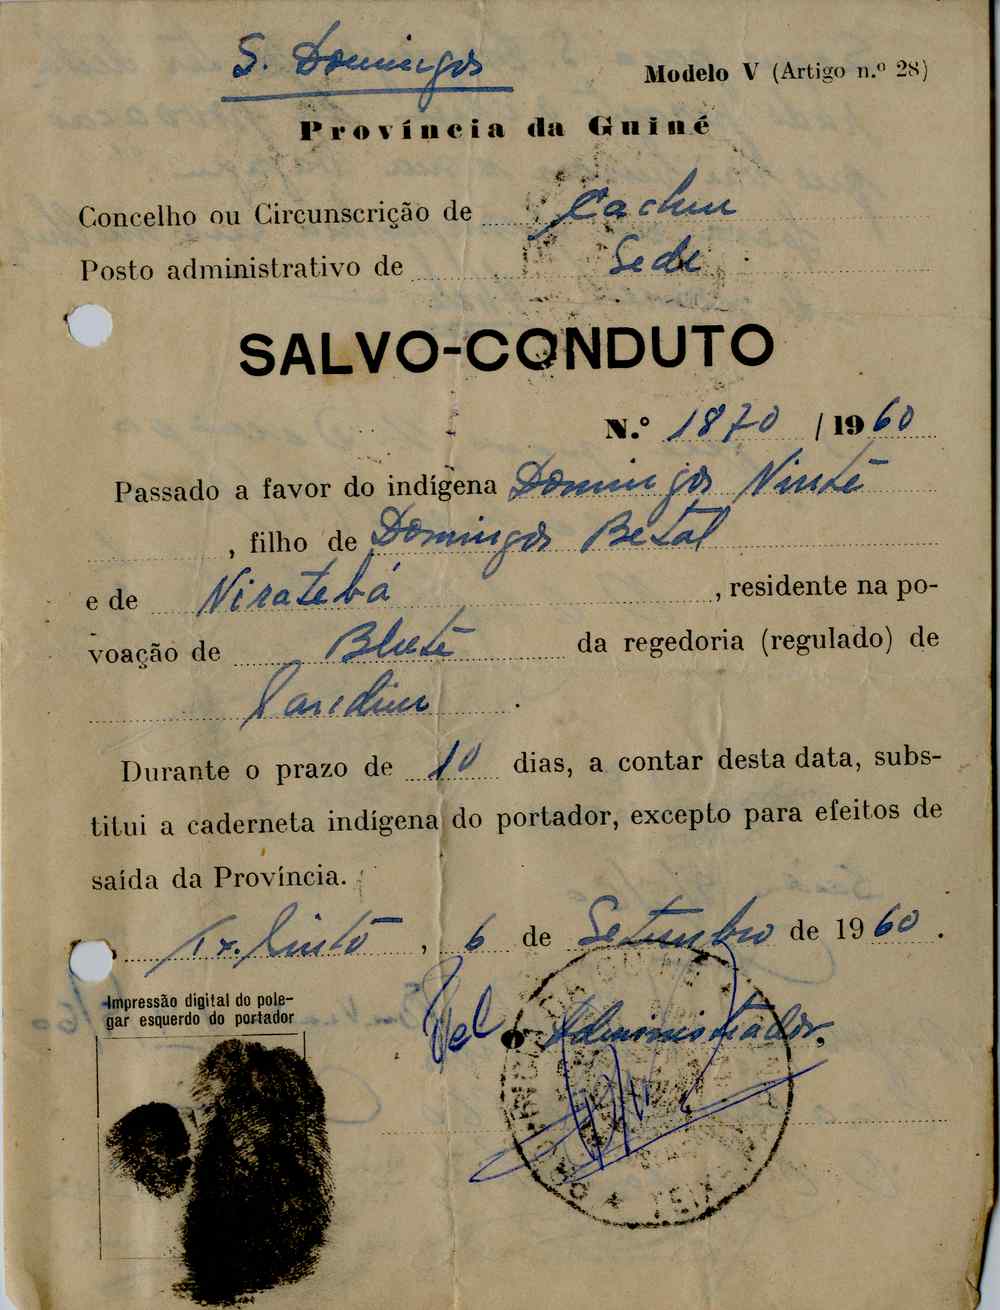 S. Domingos
Modelo V (Artigo n.º 28)
Província da Guiné
Concelho ou Circunscrição de Cacheu
Posto administrativo de Sede
SALVO-CONDUTO
N.º 1870 / 1960
Passado a favor do indígena Domingos Nintê
, filho de Domingos Betal
e de Niratebá , residente na po-
voação de Blutê da regedoria (regulado) de
.
Durante o prazo de 10 dias, a contar desta data, subs-
titui a caderneta indígena do portador, excepto para efeitos de
saída da Província.
, 6 de Setembro de 1960.
Impressão digital do pole-
gar esquerdo do portador
Pel o Administrador,